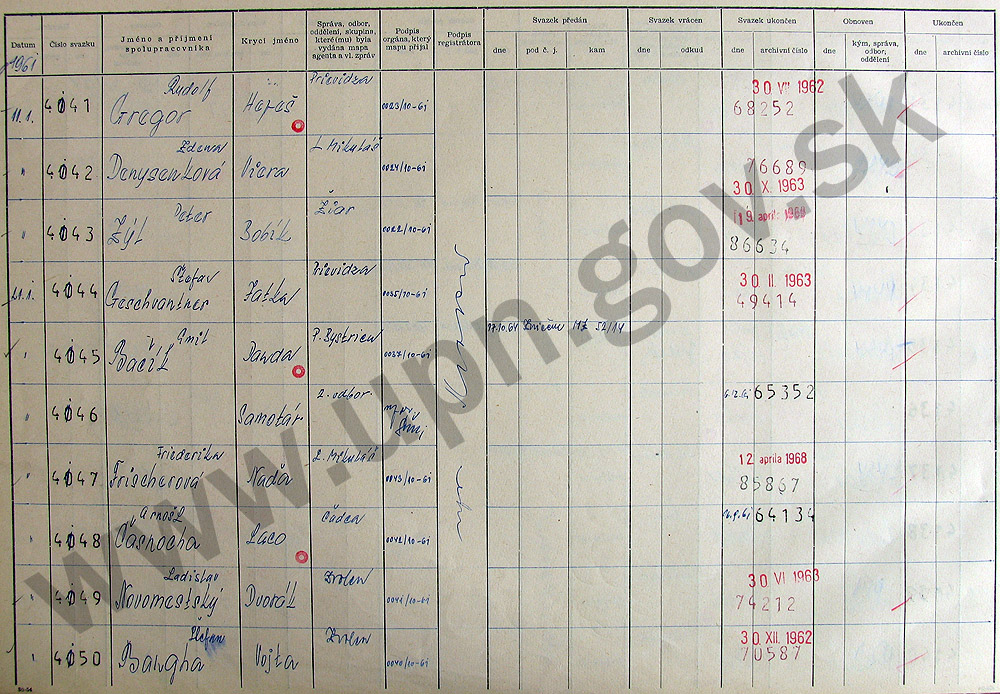 Datum
Číslo svazku
Jméno a příjmení spolupracovníka
Krycí jméno
Správa, odbor, oddělení, skupina, které(mu) byla vydána mapa agenta a vl. zpráv
Podpis orgána, který mapu přijal
Podpis registrátora
Svazek předán
dne
pod č. j.
kam
Svazek vrácen
dne
odkud
Svazek ukončen
dne
archivní číslo
Obnoven
dne
kým, správa, odbor, oddělení
Ukončen
dne
archivní číslo
1961
11.1. 4041 Rudolf Gregor Prievidza 0023/10-61 30 VII 1962 68252
" 4042 Zdena Denysenková Viera L Mikuláš 0024/10-61 76689 30 X. 1963
" 4043 Peter Zýl Bobík Žiar 0022/10-61 19. apríla 86634
21.1. 4044 Štefan Geschvantner Fatra Prievidza 0035/10-61 30 II. 1963 49414
" 4045 Emil Bačík Panda P. Bystrica 0037/10-61 17.10.64 52/14
" 4046 Samotár 2. odbor 65352
" 4047 Friederika Frischerová Naďa L. Mikuláš 0043/10-61 12 apríla 1968 85867
" 4048 Arnošt Časnocha Laco Čadca 0042/10-61 64134
" 4049 Ladislav Novomestský Dvorák Zvolen 0041/10-61 30 VI 1963 74212
" 4050 Štefan Bangha Vojta Zvolen 0040/10-61 30. XII. 1962 70587
www.upn.gov.sk